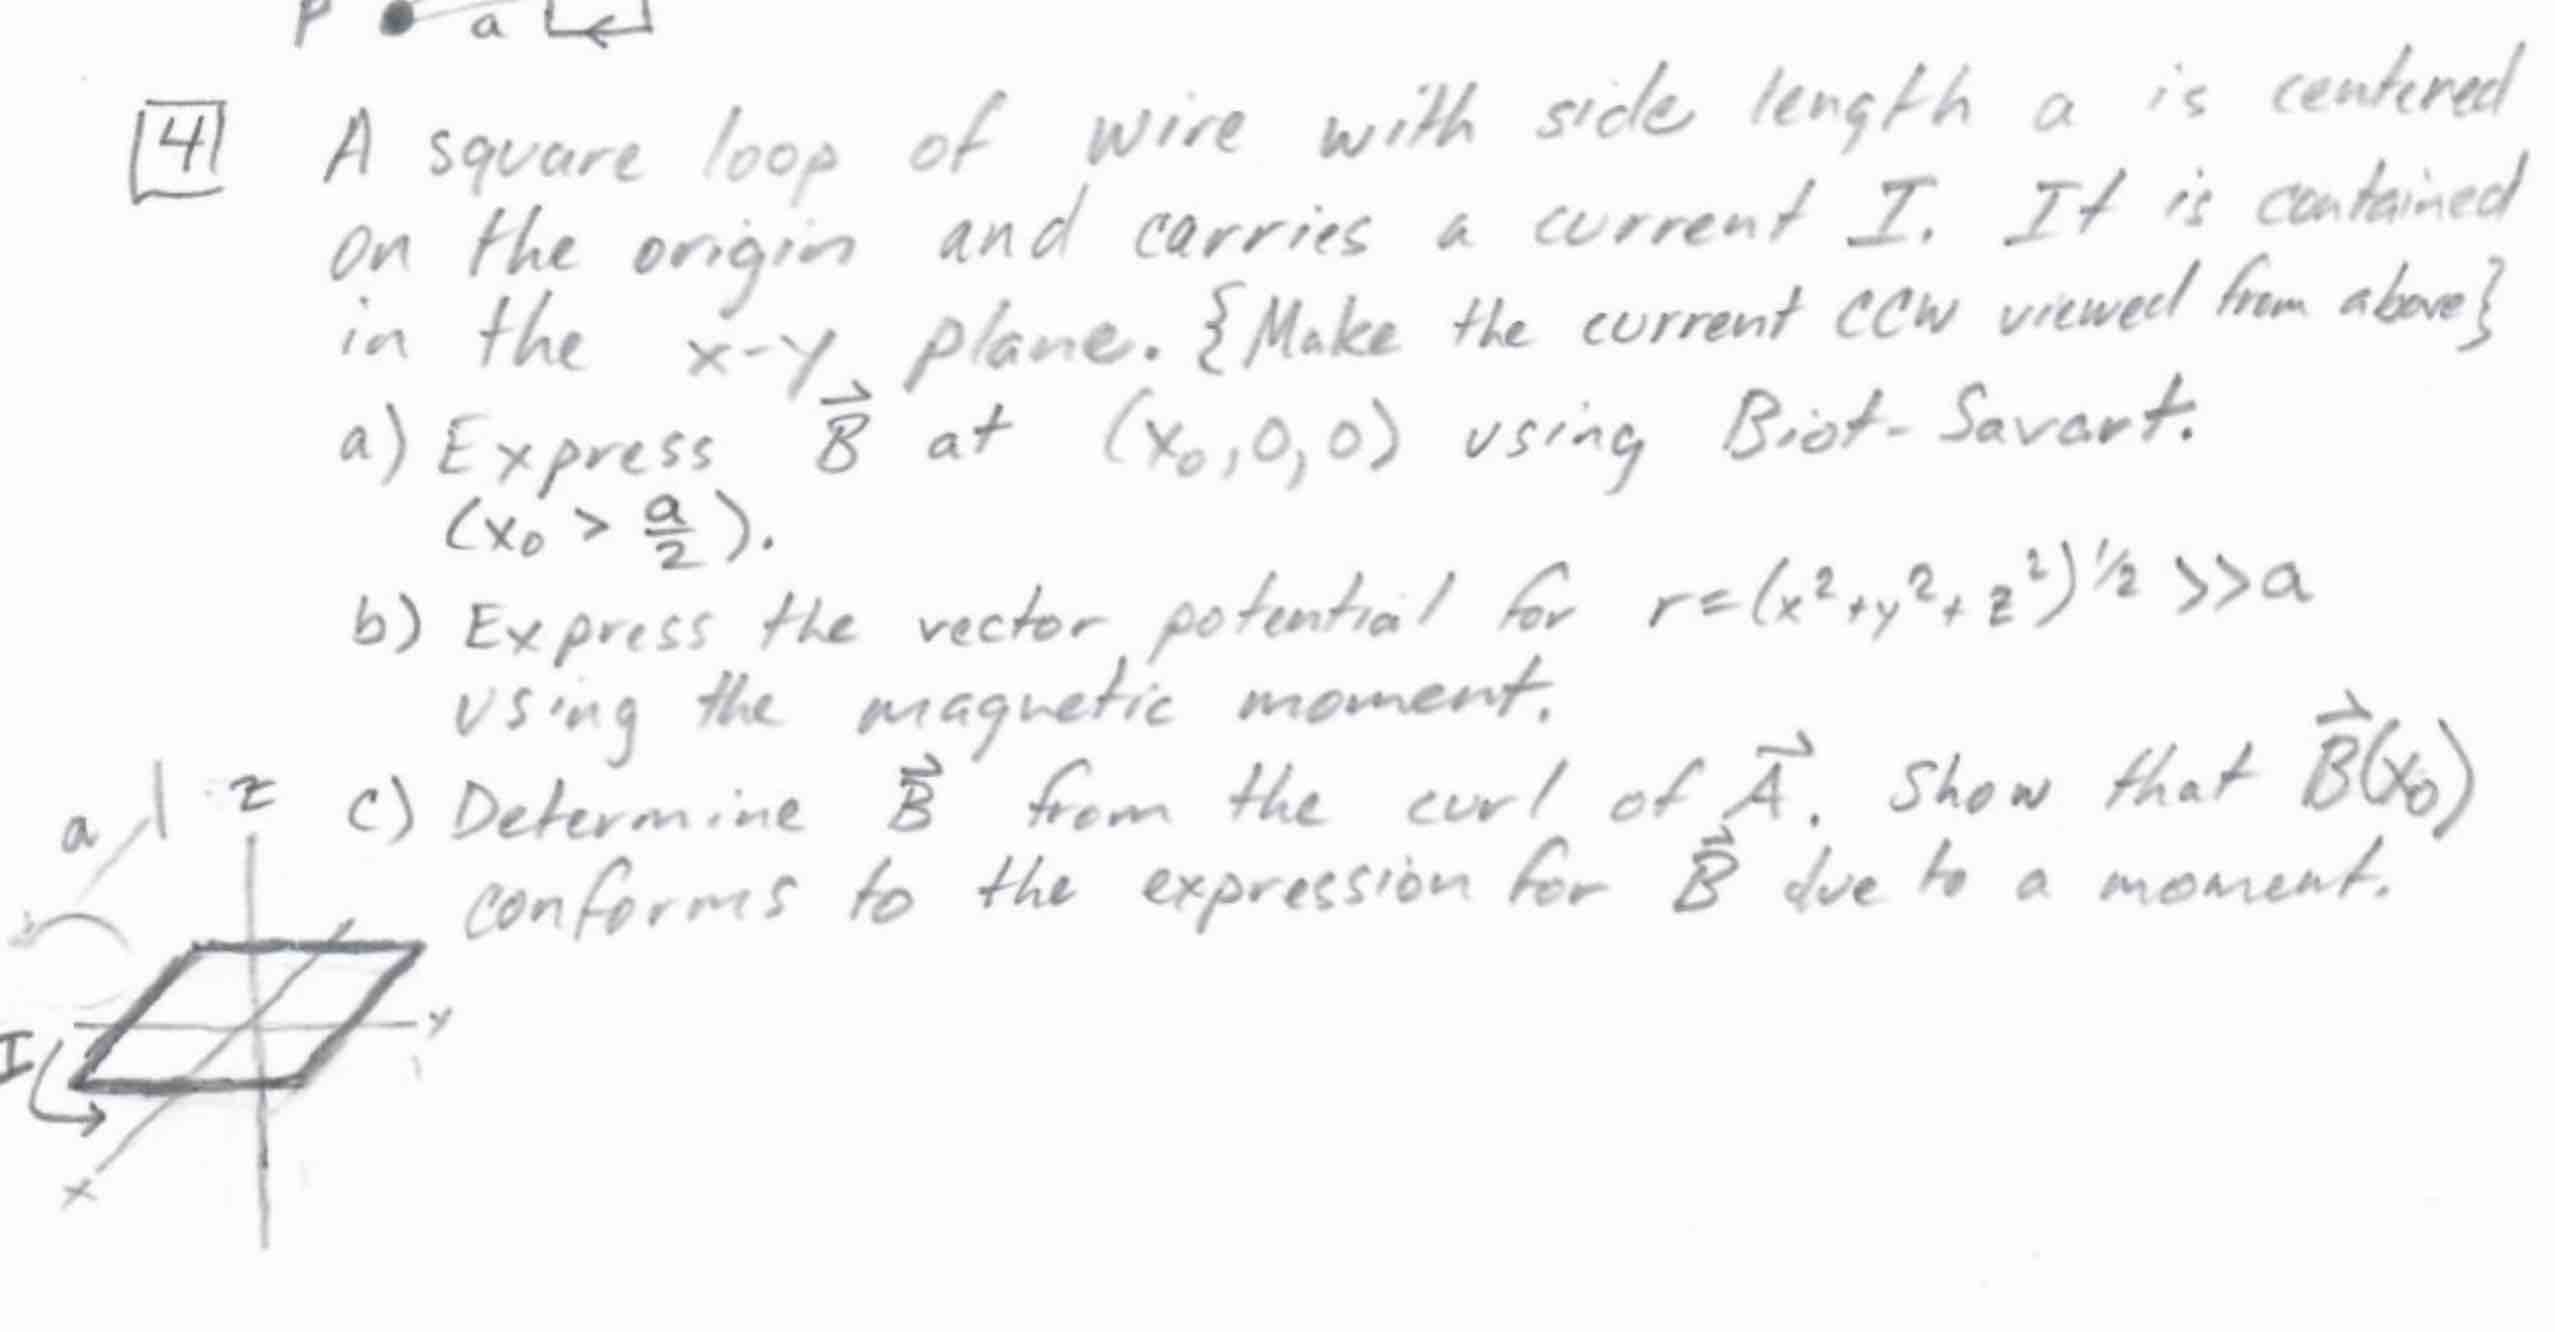 P a
4 A square loop of wire with side length a is centered
on the origin and carries a current I. It is contained
in the x-y plane. {Make the current CCW viewed from above}
a) Express B⃗ at (x₀,0,0) using Biot-Savart.
(x₀ > a/2).
b) Express the vector potential for r=(x²+y²+z²)^1/2 >>a
using the magnetic moment.
c) Determine B⃗ from the curl of A⃗. Show that B⃗(x₀)
conforms to the expression for B⃗ due to a moment.
a z
y
I
x